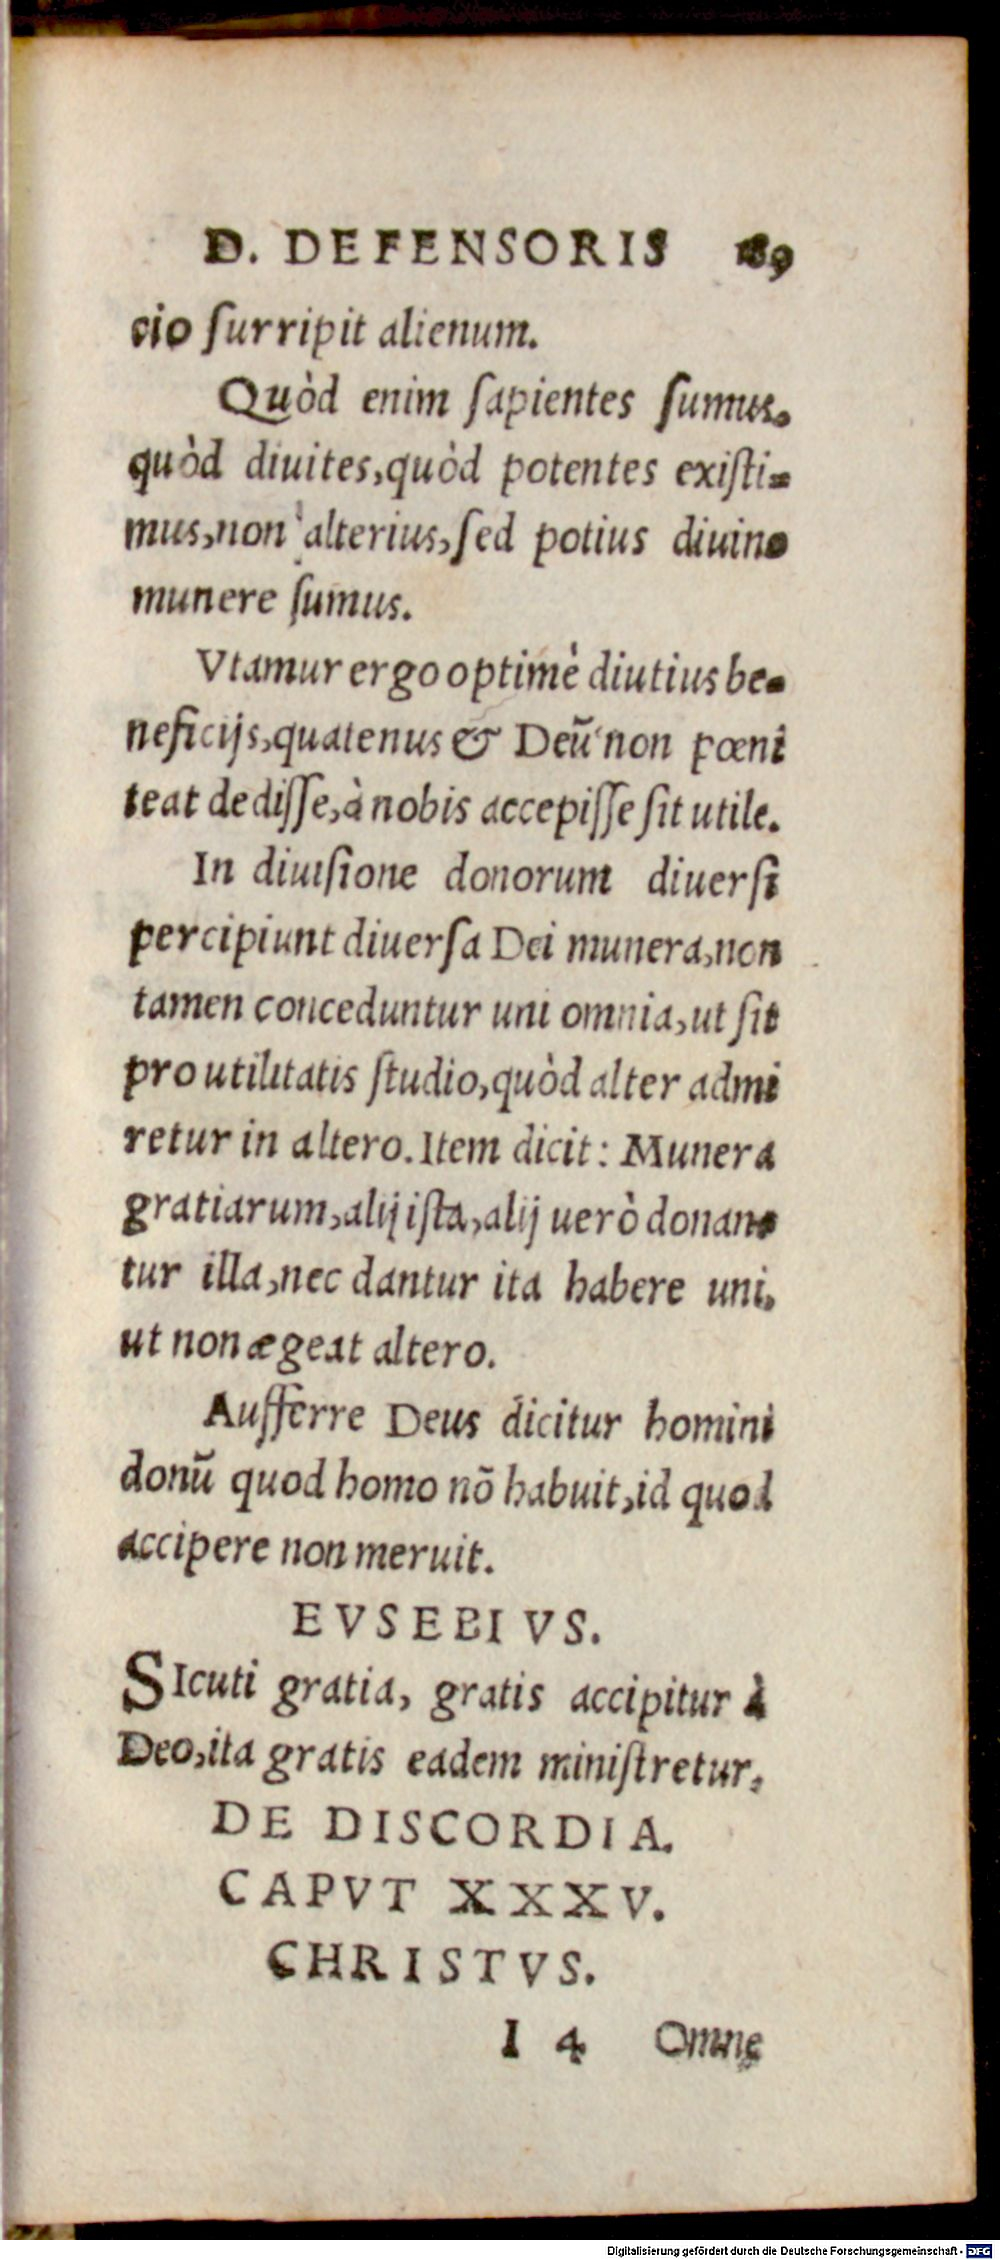 D. DEFENSORIS 189
cio ſurripit alienum.
Quòd enim ſapientes ſumus,
quòd diuites, quòd potentes exiſti-
mus, non alterius, ſed potius diuino
munere ſumus.
Vtamur ergo optimè diutius be-
neficijs, quatenus & Deū non pœni
teat dediſſe, à nobis accepiſſe ſit utile.
In diuiſione donorum diuerſi
percipiunt diuerſa Dei munera, non
tamen conceduntur uni omnia, ut ſit
pro utilitatis ſtudio, quòd alter admi
retur in altero. Item dicit: Munera
gratiarum, alij iſta, alij uerò donan-
tur illa, nec dantur ita habere uni,
ut non ægeat altero.
Aufferre Deus dicitur homini
donū quod homo nō habuit, id quod
accipere non meruit.
EVSEBIVS.
SIcuti gratia, gratis accipitur à
Deo, ita gratis eadem miniſtretur,
DE DISCORDIA.
CAPVT XXXV.
CHRISTVS.
I 4 Omne
Digitalisierung gefördert durch die Deutsche Forschungsgemeinschaft - DFG